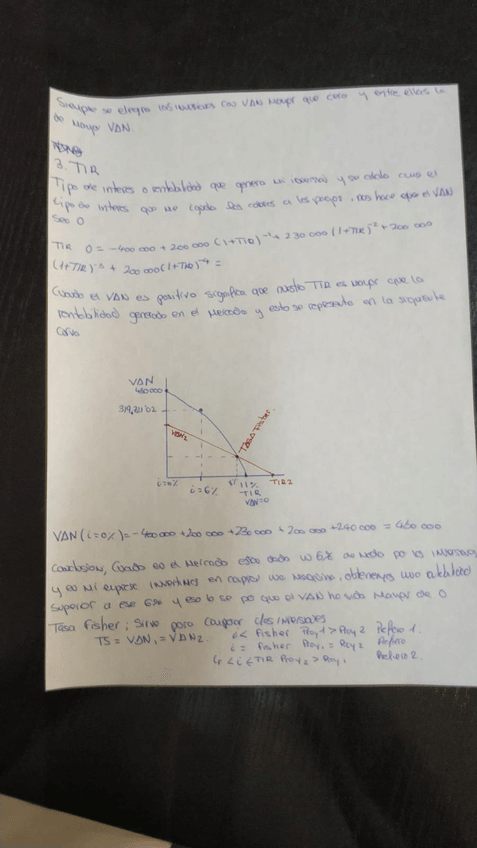 Siempre se elegira las inversiones con VAN mayor que cero y entre ellas la
de mayor VAN.
3. TIR
Tipo de interes o rentabilidad que genera mi inversion y se calcula como el
tipo de interes que me iguala los cobros a los pagos, nos hace que el VAN
sea 0
TIR 0 = -400 000 + 200 000 (1+TIR)⁻¹ + 230 000 (1+TIR)⁻² + 200 000
(1+TIR)⁻³ + 200 000 (1+TIR)⁻⁴ =
Cuando el VAN es positivo significa que nuestro TIR es mayor que la
rentabilidad generada en el mercado y esto se representa en la siguiente
curva
VAN
VAN2
Tasa Fisher
i=0%
i=6%
11%
TIR
VAN=0
TIR2
VAN (i=0%) = -400 000 + 200 000 + 230 000 + 200 000 + 240 000 = 460 000
Conclusion, Cuando en el mercado estan dando un 6% de media por las inversiones
y en mi empresa invertimos en comprar una maquina, obtenemos una rentabilidad
superior a ese 6% y eso lo se por que el VAN ha sido mayor de 0
Tasa Fisher: Sirve para comparar dos inversiones
TS = VAN₁ = VAN2. i < Fisher Proy 1 > Proy 2 Prefiero 1.
i = Fisher Proy₁ = Proy 2
< i < TIR Proy 2 > Proy₁ Prefiero 2.